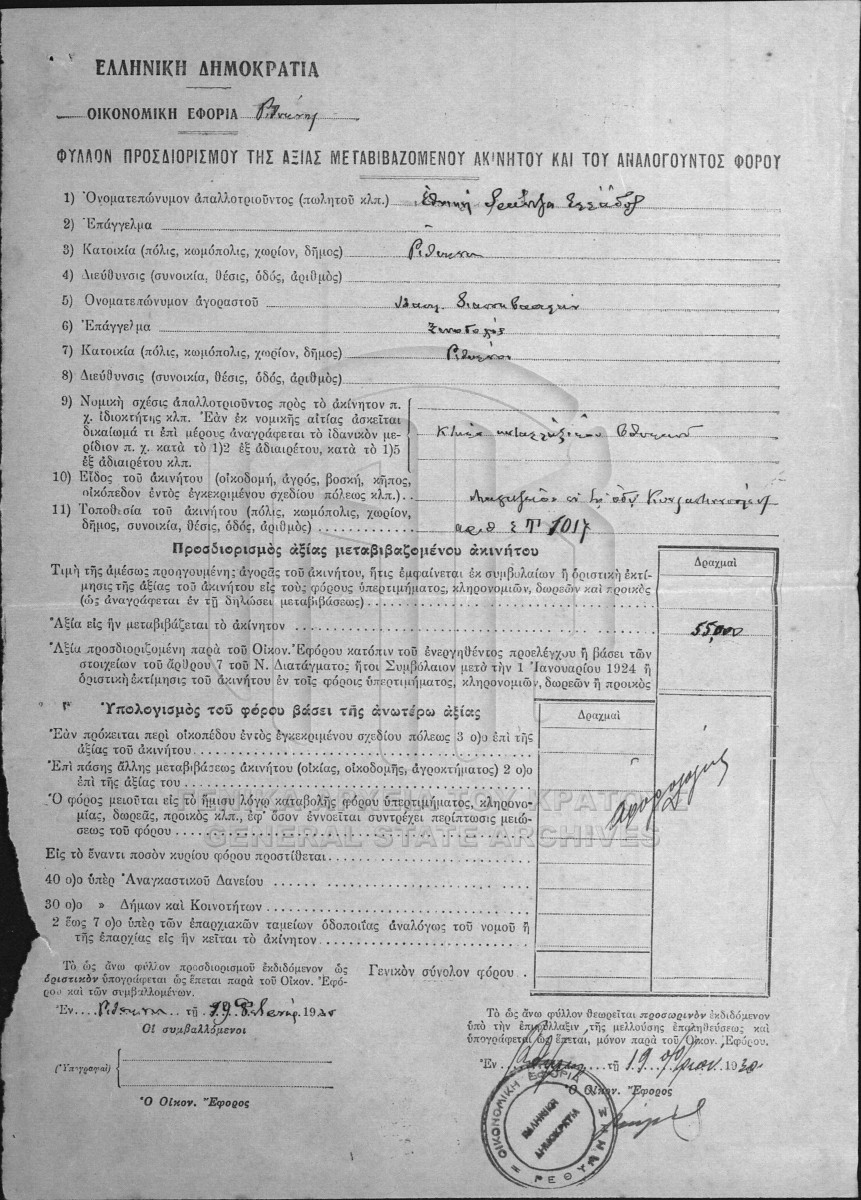 ΕΛΛΗΝΙΚΗ ΔΗΜΟΚΡΑΤΙΑ
ΟΙΚΟΝΟΜΙΚΗ ΕΦΟΡΙΑ
ΦΥΛΛΟΝ ΠΡΟΣΔΙΟΡΙΣΜΟΥ ΤΗΣ ΑΞΙΑΣ ΜΕΤΑΒΙΒΑΖΟΜΕΝΟΥ ΑΚΙΝΗΤΟΥ ΚΑΙ ΤΟΥ ΑΝΑΛΟΓΟΥΝΤΟΣ ΦΟΡΟΥ
1) Ὀνοματεπώνυμον ἀπαλλοτριοῦντος (πωλητοῦ κλπ.) Ἐθνικὴ Τράπεζα Ἑλλάδος
2) Ἐπάγγελμα
3) Κατοικία (πόλις, κωμόπολις, χωρίον, δῆμος) Ρέθυμνα
4) Διεύθυνσις (συνοικία, θέσις, ὁδός, ἀριθμὸς)
5) Ὀνοματεπώνυμον ἀγοραστοῦ
6) Ἐπάγγελμα
7) Κατοικία (πόλις, κωμόπολις, χωρίον, δῆμος) Ρέθυμνον
8) Διεύθυνσις (συνοικία, θέσις, ὁδός, ἀριθμὸς)
9) Νομικὴ σχέσις ἀπαλλοτριοῦντος πρὸς τὸ ἀκίνητον π.
χ. ἰδιοκτήτης κλπ. Ἐὰν ἐκ νομικῆς αἰτίας ἀσκεῖται
δικαίωμά τι ἐπὶ μέρους ἀναγράφεται τὸ ἰδανικὸν με-
ρίδιον π. χ. κατὰ τὸ 1)2 ἐξ ἀδιαιρέτου, κατὰ τὸ 1)5
ἐξ ἀδιαιρέτου κλπ.
10) Εἶδος τοῦ ἀκινήτου (οἰκοδομή, ἀγρός, βοσκή, κῆπος,
οἰκόπεδον ἐντὸς ἐγκεκριμένου σχεδίου πόλεως κλπ.)
11) Τοποθεσία τοῦ ἀκινήτου (πόλις, κωμόπολις, χωρίον,
δῆμος, συνοικία, θέσις, ὁδός, ἀριθμὸς) ἀριθ 1017
Προσδιορισμὸς ἀξίας μεταβιβαζομένου ἀκινήτου
Δραχμαὶ
Τιμὴ τῆς ἀμέσως προηγουμένης ἀγορᾶς τοῦ ἀκινήτου, ἥτις ἐμφαίνεται ἐκ συμβολαίων ἢ ὁριστικὴ ἐκτί-
μησις τῆς ἀξίας τοῦ ἀκινήτου εἰς τοὺς φόρους ὑπερτιμήματος, κληρονομιῶν, δωρεῶν καὶ προικὸς
(ὡς ἀναγράφεται ἐν τῇ δηλώσει μεταβιβάσεως)
Ἀξία εἰς ἣν μεταβιβάζεται τὸ ἀκίνητον 55,000
Ἀξία προσδιοριζομένη παρὰ τοῦ Οἰκον. Ἐφόρου κατόπιν τοῦ ἐνεργηθέντος προελέγχου ἢ βάσει τῶν
στοιχείων τοῦ ἄρθρου 7 τοῦ Ν. Διατάγματος ἤτοι Συμβόλαιον μετὰ τὴν 1 Ἰανουαρίου 1924 ἢ
ὁριστικὴ ἐκτίμησις τοῦ ἀκινήτου ἐν τοῖς φόροις ὑπερτιμήματος, κληρονομιῶν, δωρεῶν ἢ προικὸς
Ὑπολογισμὸς τοῦ φόρου βάσει τῆς ἀνωτέρω ἀξίας
Δραχμαὶ
Ἐὰν πρόκειται περὶ οἰκοπέδου ἐντὸς ἐγκεκριμένου σχεδίου πόλεως 3 ο)ο ἐπὶ τῆς
ἀξίας τοῦ ἀκινήτου
Ἐπὶ πάσης ἄλλης μεταβιβάσεως ἀκινήτου (οἰκίας, οἰκοδομῆς, ἀγροκτήματος) 2 ο)ο
ἐπὶ τῆς ἀξίας του
Ὁ φόρος μειοῦται εἰς τὸ ἥμισυ λόγῳ καταβολῆς φόρου ὑπερτιμήματος, κληρονο-
μίας, δωρεᾶς, προικὸς κλπ., ἐφ' ὅσον ἐννοεῖται συντρέχει περίπτωσις μειώ-
σεως τοῦ φόρου
ΓΕΝΙΚΑ ΑΡΧΕΙΑ ΤΟΥ ΚΡΑΤΟΥΣ
GENERAL STATE ARCHIVES
Εἰς τὸ ἔναντι ποσὸν κυρίου φόρου προστίθεται
40 ο)ο ὑπὲρ Ἀναγκαστικοῦ Δανείου
30 ο)ο » Δήμων καὶ Κοινοτήτων
2 ἕως 7 ο)ο ὑπὲρ τῶν ἐπαρχιακῶν ταμείων ὁδοποιΐας ἀναλόγως τοῦ νομοῦ ἢ
τῆς ἐπαρχίας εἰς ἣν κεῖται τὸ ἀκίνητον
Γενικὸν σύνολον φόρου
Τὸ ὡς ἄνω φύλλον προσδιορισμοῦ ἐκδιδόμενον ὡς
ὁριστικὸν ὑπογράφεται ὡς ἕπεται παρὰ τοῦ Οἰκον. Ἐφό-
ρου καὶ τῶν συμβαλλομένων.
Ἐν Ρεθύμνῃ τῇ 19 19
Οἱ συμβαλλόμενοι
(Ὑπογραφαὶ)
Ὁ Οἰκον. Ἔφορος
Τὸ ὡς ἄνω φύλλον θεωρεῖται προσωρινὸν ἐκδιδόμενον
ὑπὸ τὴν ἐπιφύλαξιν τῆς μελλούσης ἐπαληθεύσεως καὶ
ὑπογράφεται ὡς ἕπεται, μόνον παρὰ τοῦ Οἰκον. Ἐφόρου.
Ἐν τῇ 19 1930
Ὁ Οἰκον. Ἔφορος
ΟΙΚΟΝΟΜΙΚΗ ΕΦΟΡΙΑ ΡΕΘΥΜΝΗΣ
ΕΛΛΗΝΙΚΗ
ΔΗΜΟΚΡΑΤΙΑ